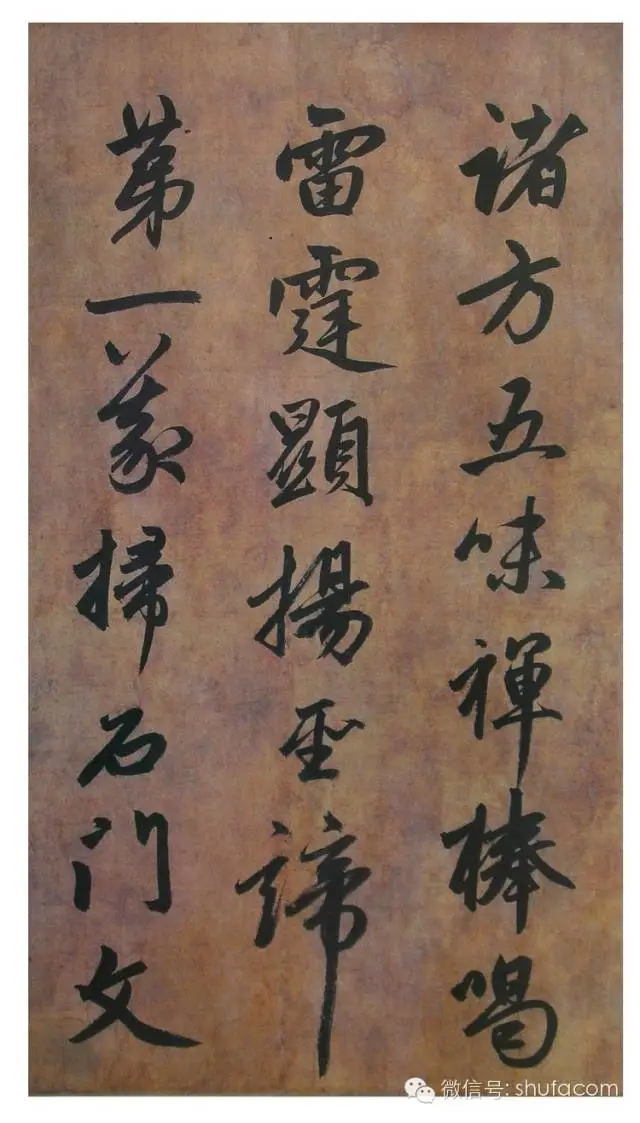 诸方五味禅棒喝
雷霆顯揚聖諦
第一義掃石门文
微信号: shufacom